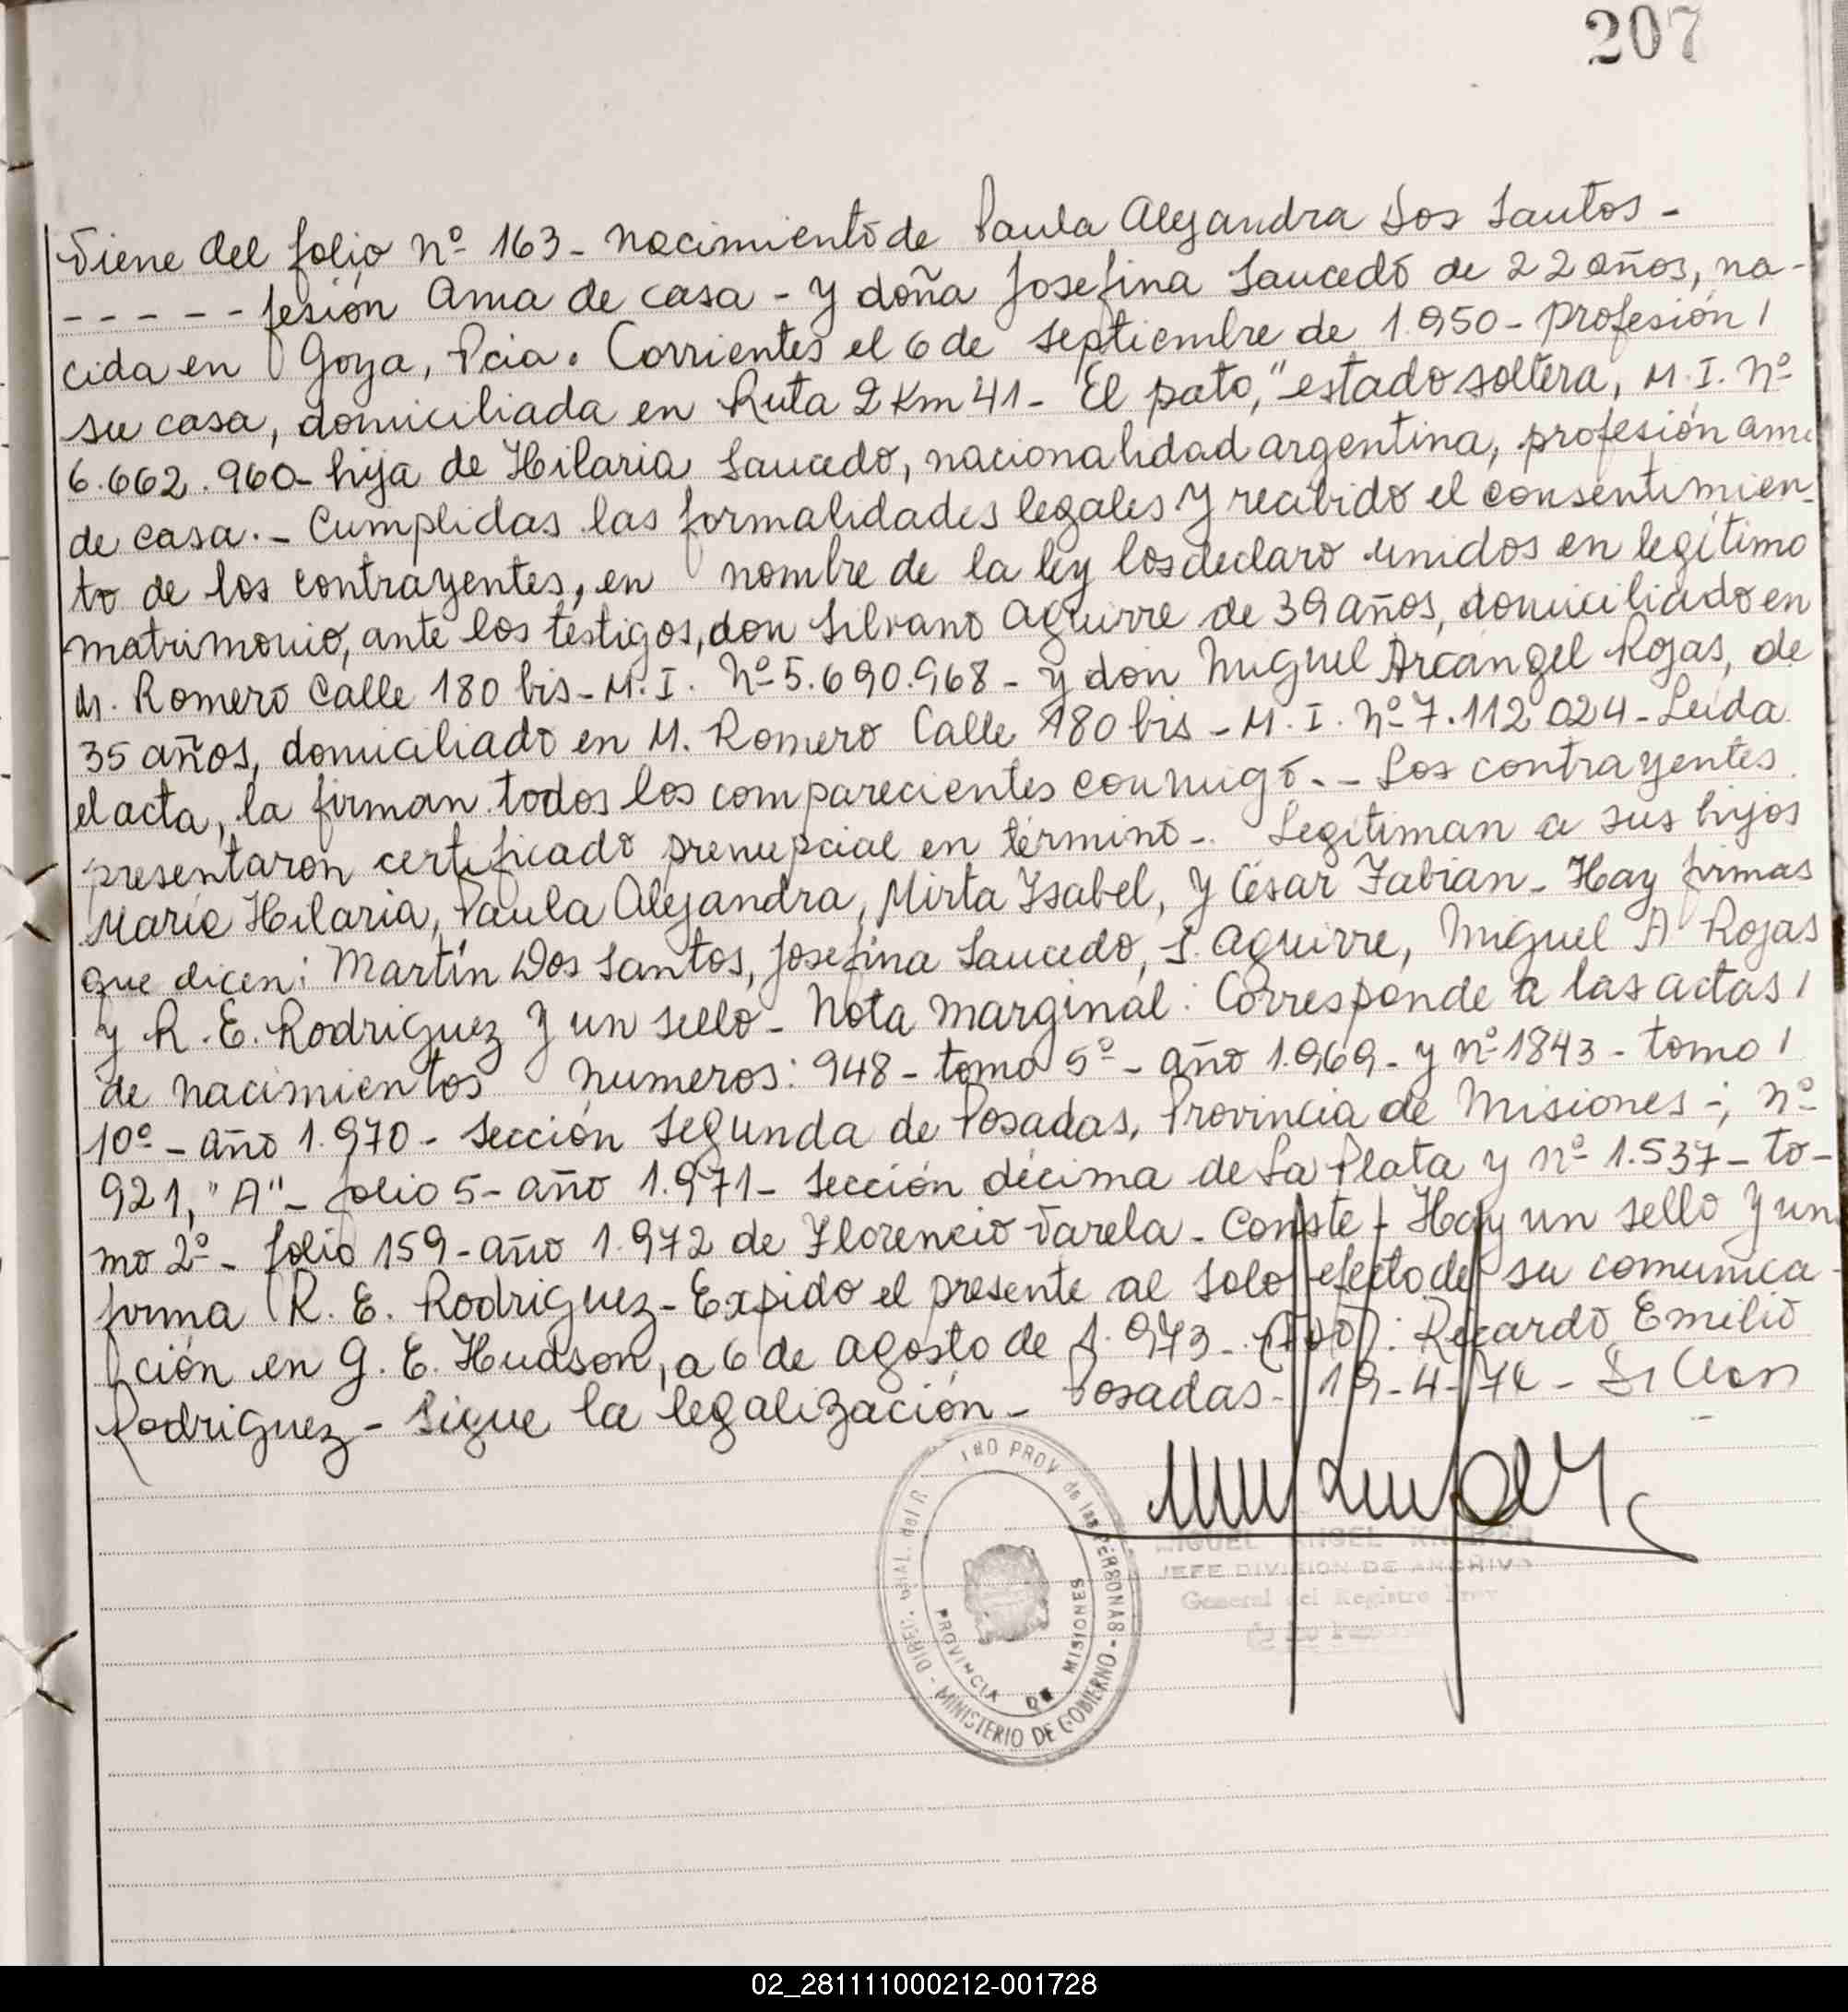 207
Viene del folio nº 163 - nacimiento de Paula Alejandra Dos Santos -
- - - - - fesión Ama de casa - y doña Josefina Saucedo de 22 años, na-
cida en Goya, Pcia. Corrientes el 6 de septiembre de 1.950 - profesión /
su casa, domiciliada en Ruta 2 Km 41 - El pato," estado soltera, M. I. nº
6.662.960 - hija de Hilaria Saucedo, nacionalidad argentina, profesión ama
de casa. - Cumplidas las formalidades legales y recibido el consentimien-
to de los contrayentes, en nombre de la ley los declaro unidos en legítimo
matrimonio, ante los testigos, don Silvano Aguirre de 39 años, domiciliado en
M. Romero Calle 180 bis - M. I. Nº 5.690.968 - y don Miguel Arcángel Rojas, de
35 años, domiciliado en M. Romero Calle 180 bis - M. I. nº 7.112.024 - Leida
el acta, la firman todos los comparecientes conmigo. - Los contrayentes
presentaron certificado prenupcial en término -. Legitiman a sus hijos
María Hilaria, Paula Alejandra, Mirta Ysabel, y César Fabian - Hay firmas
que dicen: Martín Dos Santos, Josefina Saucedo, S. Aguirre, Miguel A Rojas
y R. E. Rodriguez y un sello - Nota marginal: Corresponde a las actas /
de nacimientos numeros: 948 - tomo 5º - año 1.969 - y nº 1843 - tomo /
10º - año 1.970 - sección segunda de Posadas, Provincia de Misiones -; nº
921, "A" - folio 5 - año 1.971 - sección décima de La Plata y nº 1.537 - to-
mo 2º - folio 159 - año 1.972 de Florencio Varela - Conste - Hay un sello y un
firma R. E. Rodriguez - Expido el presente al solo efecto de su comunica-
ción en G. E. Hudson, a 6 de agosto de 1.973 - (Fdo): Ricardo Emilio
Rodriguez - Sigue la legalización - Posadas - 19-4-74 -
DIREC. GRAL. del R PROV. de las PERSONAS - MINISTERIO DE GOBIERNO -
PROVINCIA DE MISIONES
MIGUEL ANGEL
JEFE DIVISION DE ARCHIVO
General del Registro Prov
02_281111000212-001728